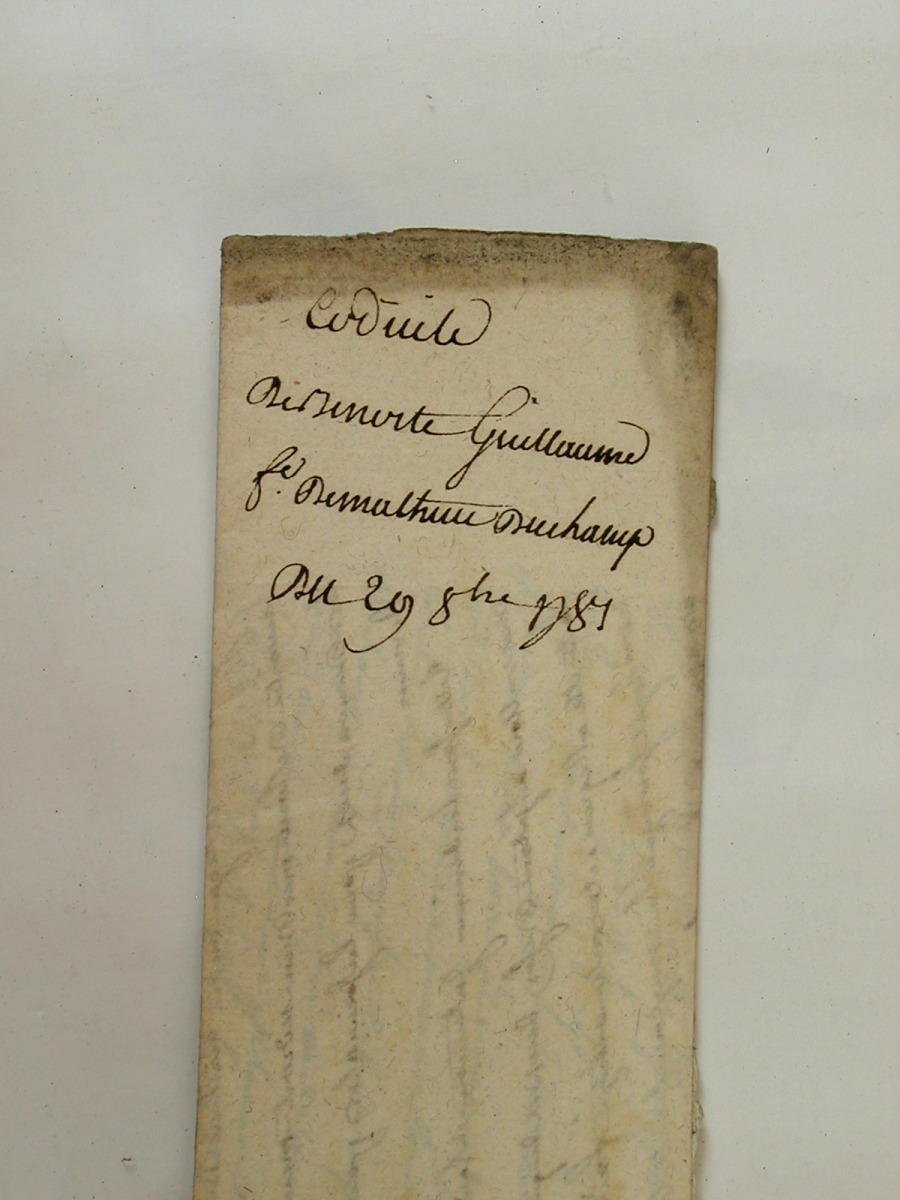 Codicile
De Benoite Guillaume
fe. De mathieu Duchamp
Du 29 8bre 1781